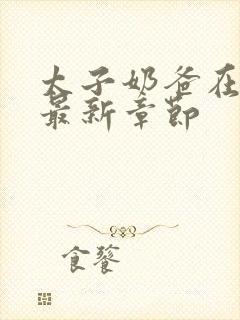 太子奶爸在
最新章节
食饕